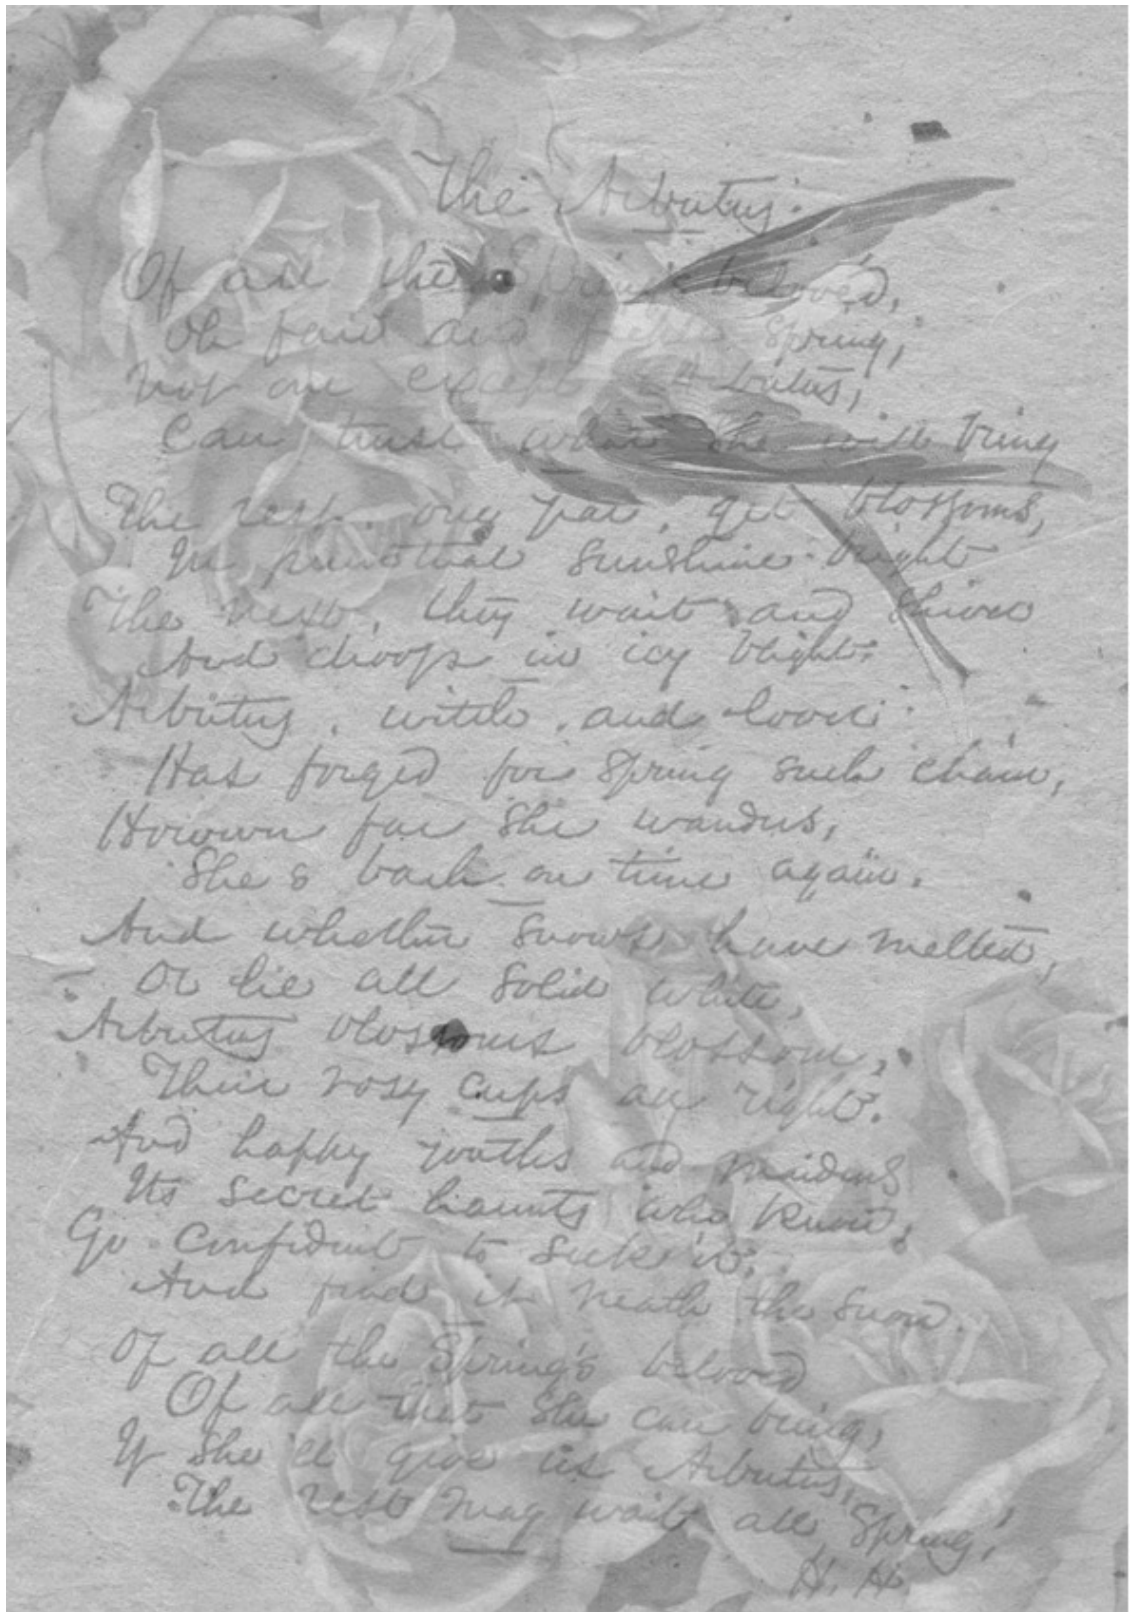 The Arbutus.
Of all the Spring's beloved,
Oh fair and fickle Spring,
Not one except Arbutus,
Can trust what she will bring
The rest, one year, get blossoms,
In punctual sunshine bright
The next, they wait and shiver
And droop in icy blight.
Arbutus, witch, and lover
Has forged for Spring such chain,
However far she wanders,
She's back on time again.
And whether snows have melted,
Or lie all solid white,
Arbutus blossoms blossom,
Their rosy cups all right.
And happy youths and maidens
Its secret haunts who know,
Go confident to seek it,
And find it neath the snow.
Of all the Spring's beloved
Of all that she can bring,
If she'll give us Arbutus,
The rest may wait all Spring!
H. H.